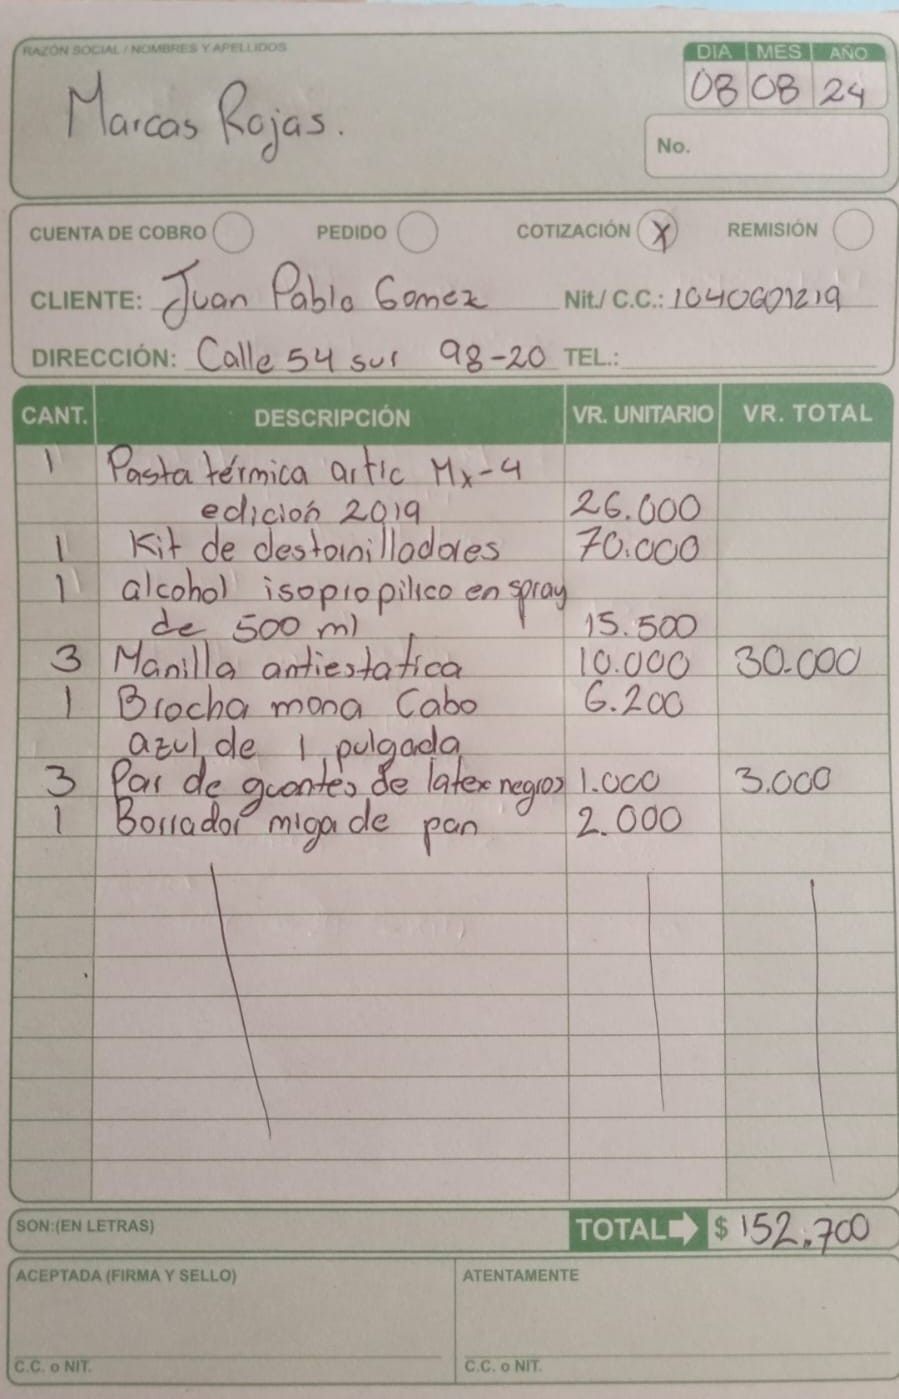 RAZÓN SOCIAL / NOMBRES Y APELLIDOS
DIA MES AÑO
Marcos Rojas. 08 08 24
No.
CUENTA DE COBRO PEDIDO COTIZACIÓN X REMISIÓN
CLIENTE: Juan Pablo Gomez Nit./ C.C.: 1040601219
DIRECCIÓN: Calle 54 sur 98-20 TEL.:
CANT. DESCRIPCIÓN VR. UNITARIO VR. TOTAL
1 Pasta térmica artic Mx-4
edición 2019 26.000
1 Kit de destornilladores 70.000
1 alcohol isopropilico en spray
de 500 ml 15.500
3 Manilla antiestatica 10.000 30.000
1 Brocha mona Cabo 6.200
azul de 1 pulgada
3 Par de guantes de latex negros 1.000 3.000
1 Borrador miga de pan 2.000
SON:(EN LETRAS) TOTAL $ 152.700
ACEPTADA (FIRMA Y SELLO) ATENTAMENTE
C.C. o NIT. C.C. o NIT.